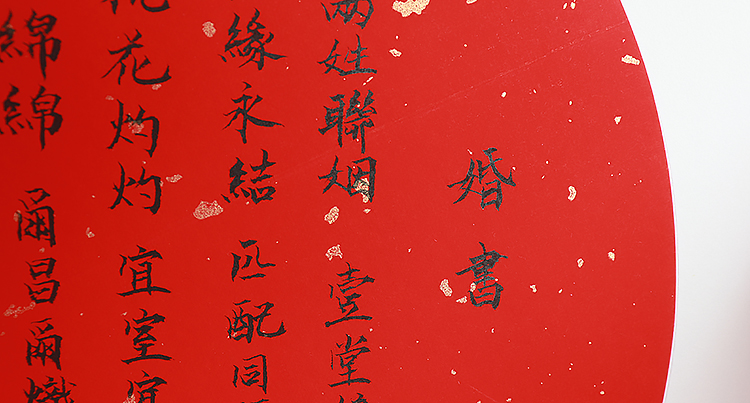 婚書
兩姓聯姻 壹堂
緣永結 匹配同
桃花灼灼 宜室宜
綿綿 爾昌爾熾